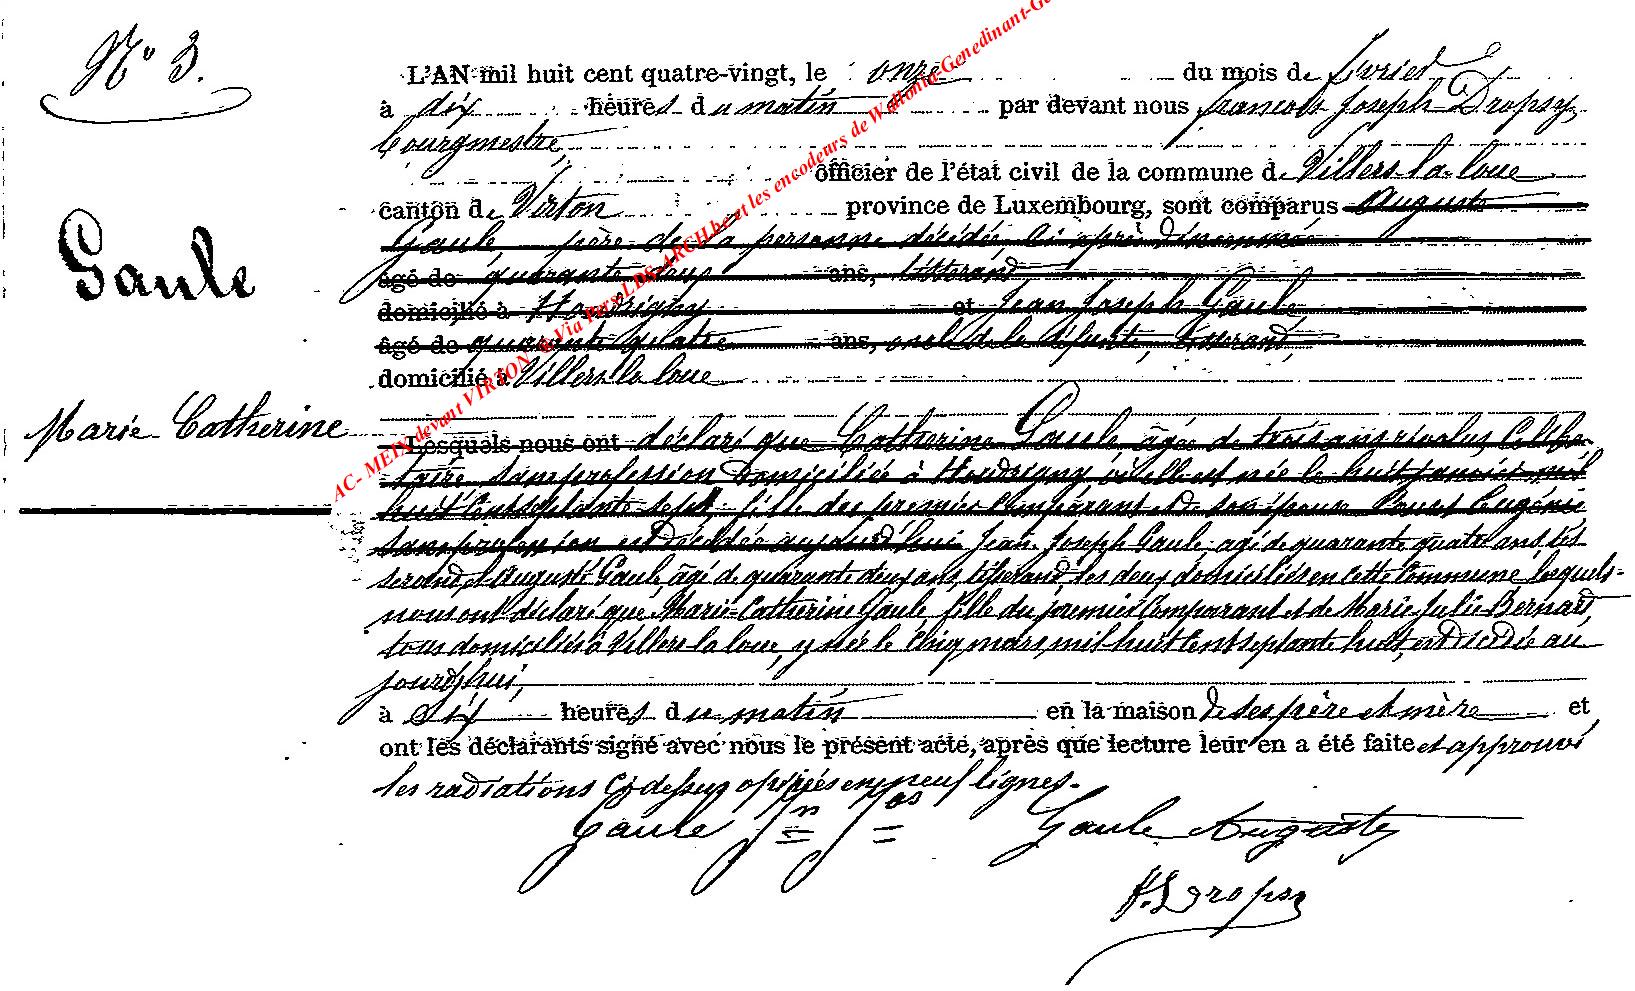 N° 3.
Gaule
Marie Catherine
L'AN mil huit cent quatre-vingt, le onze du mois de février
à dix heures du matin par devant nous françois Joseph Dropsy,
bourgmestre,
officier de l'état civil de la commune de Villers-la-loue
canton de Virton province de Luxembourg, sont comparus Auguste
Gaule, père de la personne décédée, ci après dénommée
âgé de quarante deux ans, tisserand
domicilié à Houdrigny et Jean Joseph Gaule
âgé de quarante quatre ans, oncle de la défunte, tisserand,
domicilié à Villers la loue
Lesquels nous ont déclaré que Catherine Gaule, âgée de trois ans révolus, Céliba-
taire, sans profession domiciliée à Houdrigny où elle est née le huit janvier mil
huit cent septante sept, fille du premier Comparant et de son épouse Eugénie
sans profession est décédée aujourd'hui Jean Joseph Gaule agé de quarante quatre ans tis-
serand, et Auguste Gaule, âgé de quarante deux ans, tisserand, les deux domiciliés en cette Commune, lesquels
nous ont déclaré que Marie-Catherine Gaule, fille du premier Comparant et de Marie Julie Bernard,
tous domiciliés à Villers-la loue, y née le Cinq mars mil-huit Cent septante huit, est décédée au
jourd'hui,
à Six heures du matin en la maison de ses père et mère et
ont les déclarants signé avec nous le présent acte, après que lecture leur en a été faite et approuvé
les radiations Ci dessus opérées en neuf lignes.
Gaule Jn Jos Gaule Auguste
F. Dropsy
AC- MEIX devant VIRTON & Via Pers-LDS-ARCH.be et les encodeurs de Wallonia-Genedinant-Ge